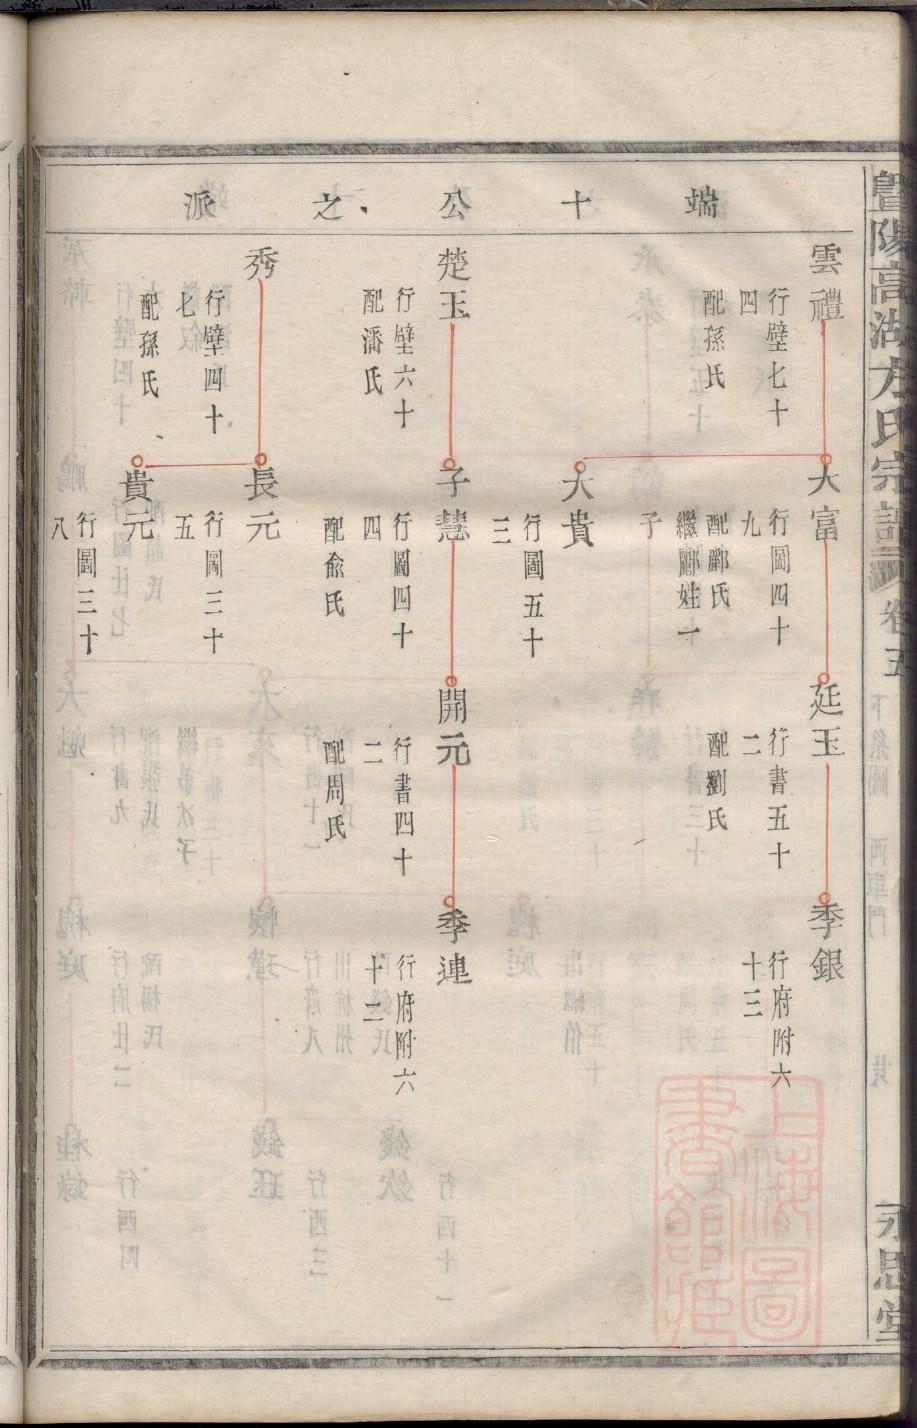 暨陽高湖方氏宗譜
卷五
永思堂
端十公之派
雲禮
行壁七十
四
配孫氏
大富
行圖四十
九
配酈氏
繼酈姓一
子
延玉
行書五十
二
配劉氏
季銀
行府附六
十三
大貴
行圖五十
三
楚玉
行壁六十
配潘氏
子慧
行圖四十
四
配俞氏
開元
行書四十
二
配周氏
季連
行府附六
十二
秀
行壁四十
七
配孫氏
長元
行圖三十
五
貴元
行圖三十
八
上海圖
書館藏